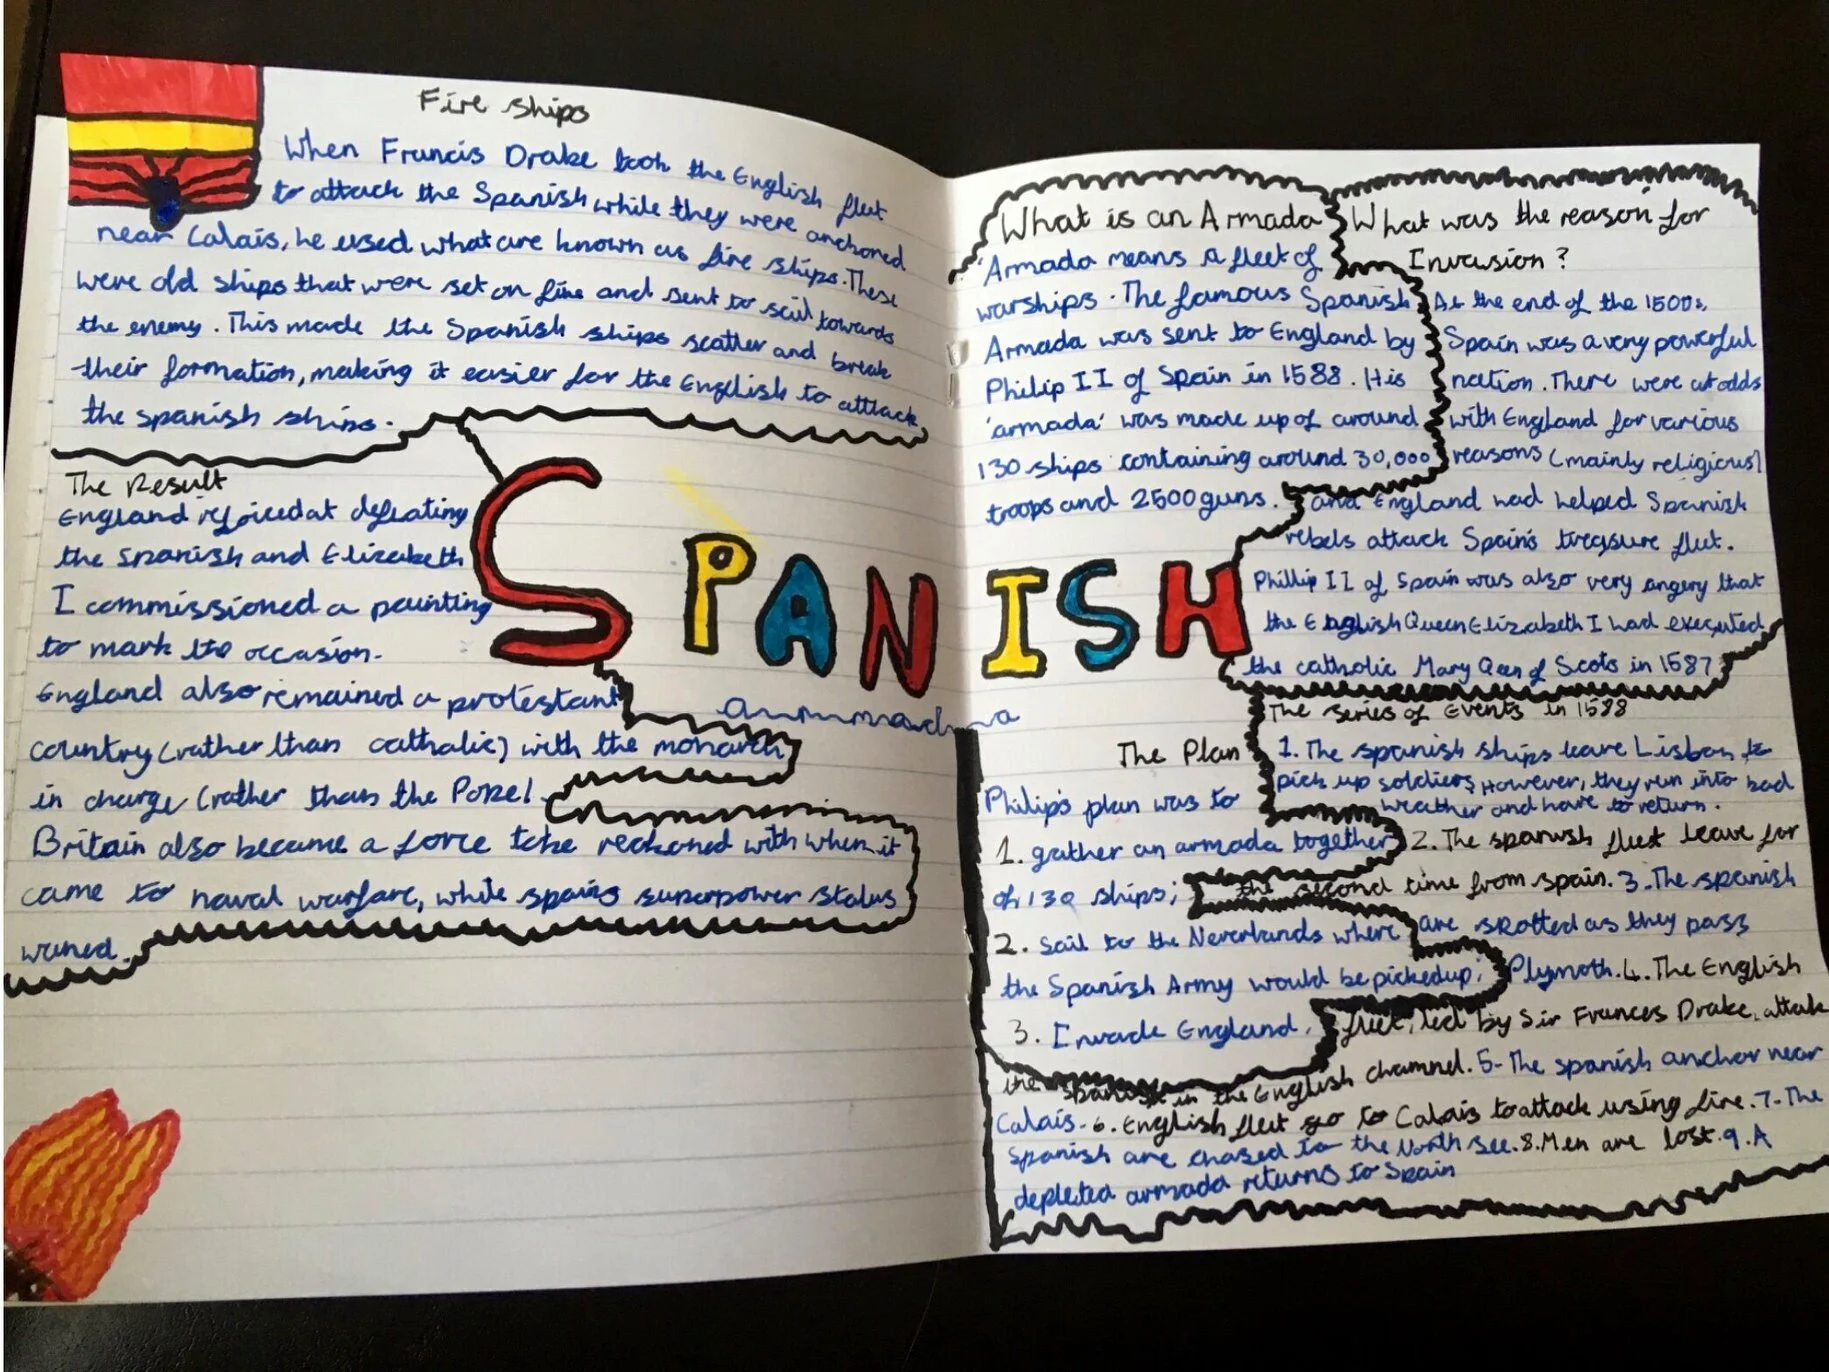 Fire ships
When Francis Drake took the English fleet
to attack the Spanish while they were anchored
near Calais, he used what are known as fire ships. These
were old ships that were set on fire and sent to sail towards
the enemy. This made the Spanish ships scatter and break
their formation, making it easier for the English to attlack
the spanish ships.
The Result
England rejoiced at defeating
the spanish and Elizabeth
I commissioned a painting
to mark the occasion.
England also remained a protestant
country (rather than catholic) with the monarch
in charge (rather than the Pope!
Britain also became a force to be reckoned with when it
came to naval warfare, while spains superpower status
waned.
SPANISH
armada
What is an Armada
'Armada means a fleet of
warships. The famous Spanish
Armada was sent to England by
Philip II of Spain in 1588. His
'armada' was made up of around
130 ships containing around 30,000
troops and 2500 guns.
What was the reason for
Invasion?
At the end of the 1500s,
Spain was a very powerful
nation. There were at odds
with England for various
reasons (mainly religious)
and England had helped Spanish
rebels attack Spain's treasure fleet.
Phillip II of Spain was also very angery that
the English Queen Elizabeth I had executed
the catholic Mary Qeen of Scots in 1587
The Plan
Philip's plan was to
1. gather an armada together
of 130 ships;
2. Sail to the Neverlands where
the Spanish Army would be picked up;
3. Invade England.
The series of Events in 1588
1. The spanish ships leave Lisbon to
pick up soldiers, However, they run into bad
weather and have to return.
2. The spanish fleet leave for
the second time from spain. 3. The spanish
are spotted as they pass
Plymoth. 4. The English
fleet, led by Sir Frances Drake, attak
the spanish in the English channel. 5. The spanish anchor near
Calais. 6. English fleet go to Calais to attack using fire. 7. The
Spanish are chased to the North see. 8. Men are lost. 9. A
depleted armada returns to Spain